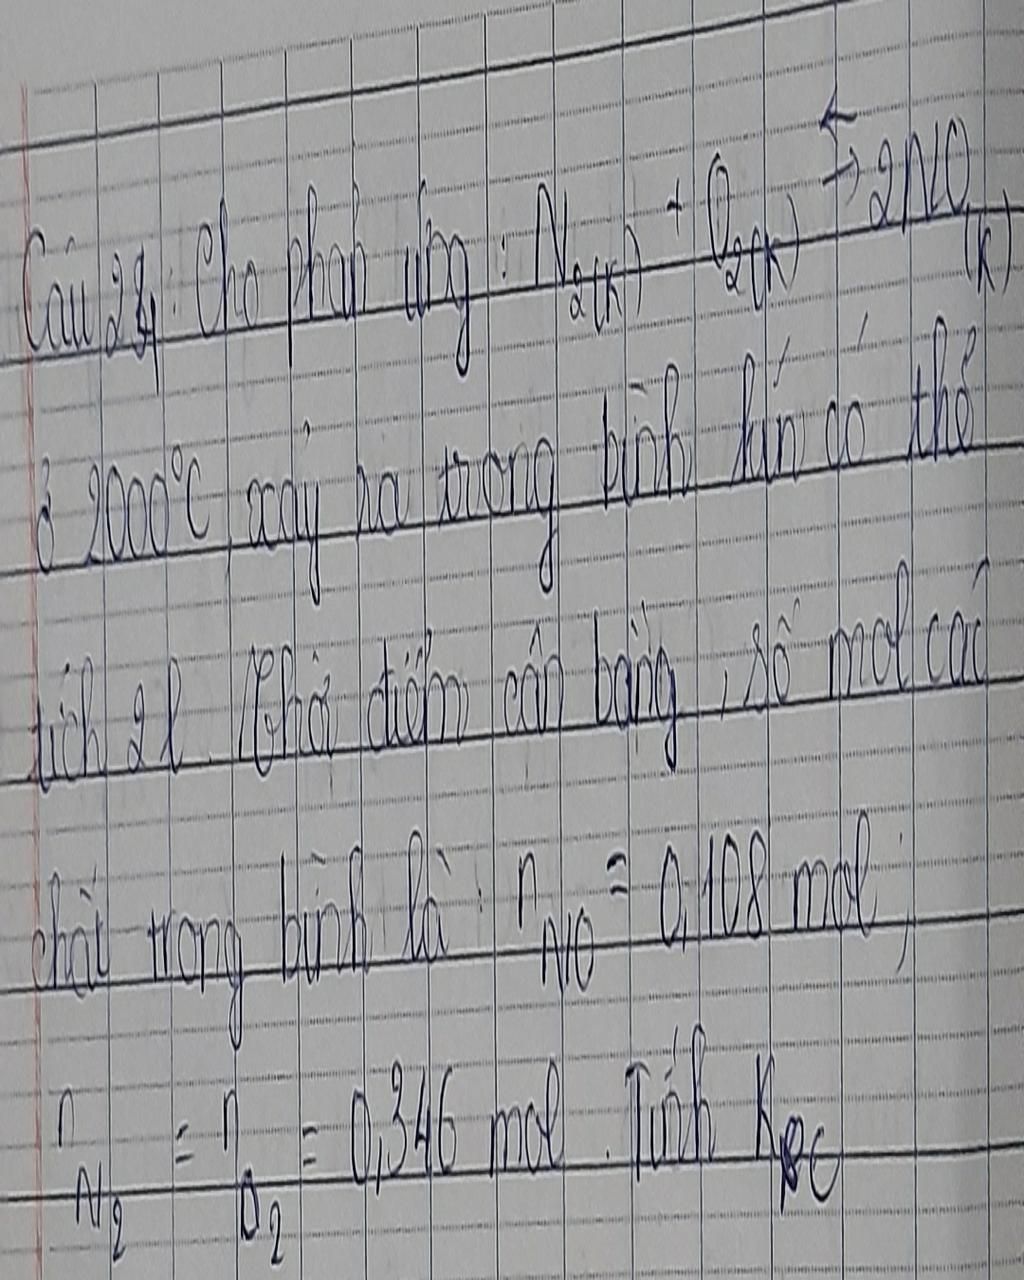 Câu 24: Cho phản ứng: N₂(k) + O₂(k) ⇆ 2NO(k)
ở 2000°C, xảy ra trong bình kín có thể
tích 2l. Thời điểm cân bằng, số mol các
chất trong bình là: n_NO = 0,108 mol;
n_N₂ = n_O₂ = 0,346 mol. Tính K_C